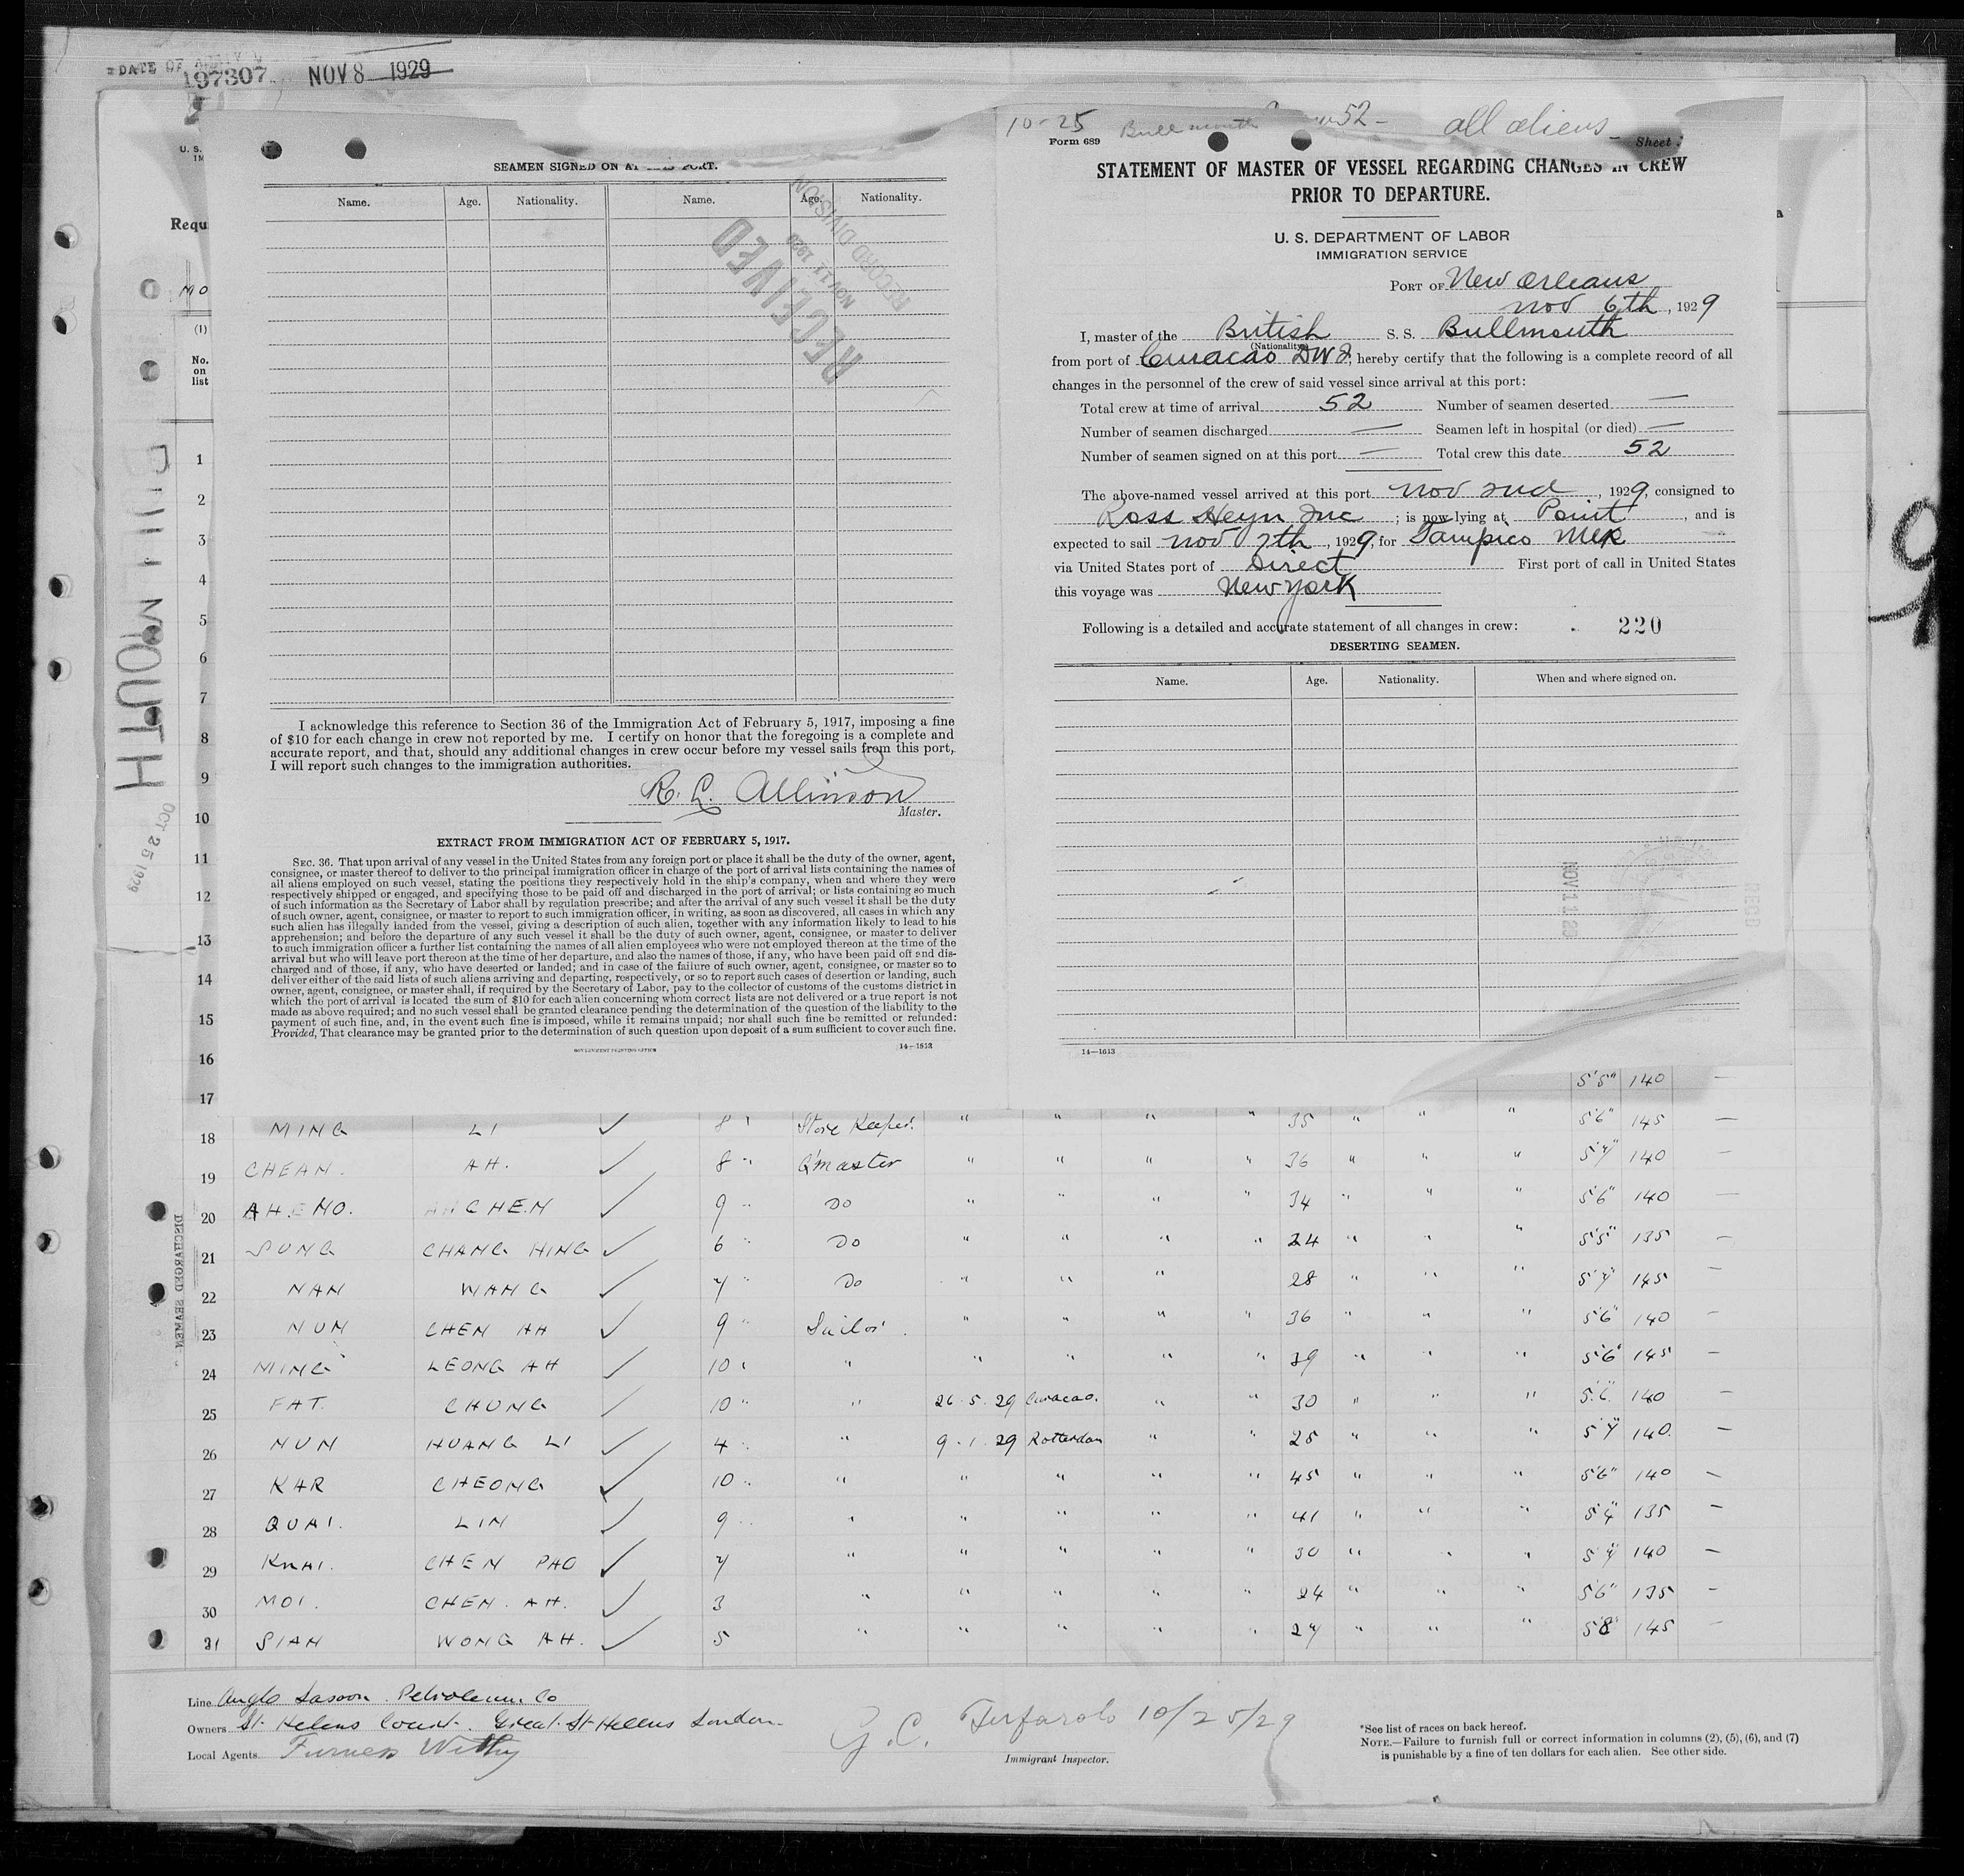 DATE OF
197307 NOV 8 1929
U. S.
IM
Requ
MO
(1)
No.
on
list
BULLMOUTH
OCT 25 1929
DISCHARGED SEAMEN
SEAMEN SIGNED ON AT THIS PORT.
Name. Age. Nationality. Name. Age. Nationality.
RECEIVED
NOV 11 1929
RECORD DIVISION
I acknowledge this reference to Section 36 of the Immigration Act of February 5, 1917, imposing a fine
of $10 for each change in crew not reported by me. I certify on honor that the foregoing is a complete and
accurate report, and that, should any additional changes in crew occur before my vessel sails from this port,
I will report such changes to the immigration authorities.
R. L. Allinson
Master.
EXTRACT FROM IMMIGRATION ACT OF FEBRUARY 5, 1917.
SEC. 36. That upon arrival of any vessel in the United States from any foreign port or place it shall be the duty of the owner, agent,
consignee, or master thereof to deliver to the principal immigration officer in charge of the port of arrival lists containing the names of
all aliens employed on such vessel, stating the positions they respectively hold in the ship's company, when and where they were
respectively shipped or engaged, and specifying those to be paid off and discharged in the port of arrival; or lists containing so much
of such information as the Secretary of Labor shall by regulation prescribe; and after the arrival of any such vessel it shall be the duty
of such owner, agent, consignee, or master to report to such immigration officer, in writing, as soon as discovered, all cases in which any
such alien has illegally landed from the vessel, giving a description of such alien, together with any information likely to lead to his
apprehension; and before the departure of any such vessel it shall be the duty of such owner, agent, consignee, or master to deliver
to such immigration officer a further list containing the names of all alien employees who were not employed thereon at the time of the
arrival but who will leave port thereon at the time of her departure, and also the names of those, if any, who have been paid off and dis-
charged and of those, if any, who have deserted or landed; and in case of the failure of such owner, agent, consignee, or master so to
deliver either of the said lists of such aliens arriving and departing, respectively, or so to report such cases of desertion or landing, such
owner, agent, consignee, or master shall, if required by the Secretary of Labor, pay to the collector of customs of the customs district in
which the port of arrival is located the sum of $10 for each alien concerning whom correct lists are not delivered or a true report is not
made as above required; and no such vessel shall be granted clearance pending the determination of the question of the liability to the
payment of such fine, and, in the event such fine is imposed, while it remains unpaid; nor shall such fine be remitted or refunded:
Provided, That clearance may be granted prior to the determination of such question upon deposit of a sum sufficient to cover such fine.
GOVERNMENT PRINTING OFFICE 14—1613
10-25 Bullmouth 52 - all aliens
Form 689 Sheet
STATEMENT OF MASTER OF VESSEL REGARDING CHANGES IN CREW
PRIOR TO DEPARTURE.
U. S. DEPARTMENT OF LABOR
IMMIGRATION SERVICE
PORT OF New Orleans
Nov 6th, 1929
I, master of the British S. S. Bullmouth
(Nationality)
from port of Curacao DWI, hereby certify that the following is a complete record of all
changes in the personnel of the crew of said vessel since arrival at this port:
Total crew at time of arrival 52 Number of seamen deserted —
Number of seamen discharged — Seamen left in hospital (or died) —
Number of seamen signed on at this port — Total crew this date 52
The above-named vessel arrived at this port Nov 2nd, 1929, consigned to
Ross Heyn Inc; is now lying at Point, and is
expected to sail Nov 7th, 1929, for Tampico Mex
via United States port of Direct First port of call in United States
this voyage was New York
Following is a detailed and accurate statement of all changes in crew: 220
DESERTING SEAMEN.
Name. Age. Nationality. When and where signed on.
NOV 11 29
RECD
14—1613
1
2
3
4
5
6
7
8
9
10
11
12
13
14
15
16
17 5'5" 140 —
18 MING LI ✓ 8 " Store Keeper " " " " 35 " " " 5'6" 145 —
19 CHEAN. AH. ✓ 8 " Q'master " " " " 36 " " " 5'4" 140 —
20 AH. HO. CHEN ✓ 9 " Do " " " " 34 " " " 5'6" 140 —
21 SUNG CHANG HING ✓ 6 " Do " " " " 24 " " " 5'5" 135 —
22 NAN WANG ✓ 7 " Do " " " 28 " " " 5'7" 145 —
23 NUN CHEN AH ✓ 9 " Sailor. " " " " 36 " " " 5'6" 140 —
24 MING LEONG AH ✓ 10 " " " " " " 39 " " " 5'6" 145 —
25 FAT. CHUNG ✓ 10 " " 26.5.29 Curacao. " " 30 " " " 5'6" 140 —
26 NUN HUANG LI ✓ 4 " " 9.1.29 Rotterdam " " 25 " " " 5'7" 140. —
27 KAR CHEONG ✓ 10 " " " " " " 45 " " " 5'6" 140 —
28 QUAI. LIN ✓ 9 " " " " " " 41 " " " 5'4" 135 —
29 KWAI. CHEN PAO ✓ 7 " " " " " 30 " " " 5'7" 140 —
30 MOI. CHEN. AH. ✓ 3 " " " " " 24 " " " 5'6" 135 —
31 SIAN WONG AH. ✓ 5 " " " " " 27 " " " 5'8" 145 —
Line Anglo Saxon Petroleum Co
Owners St. Helens Court. Great St Helens London.
Local Agents Furness Withy
G. C. 10/25/29
Immigrant Inspector.
*See list of races on back hereof.
NOTE.—Failure to furnish full or correct information in columns (2), (5), (6), and (7)
is punishable by a fine of ten dollars for each alien. See other side.